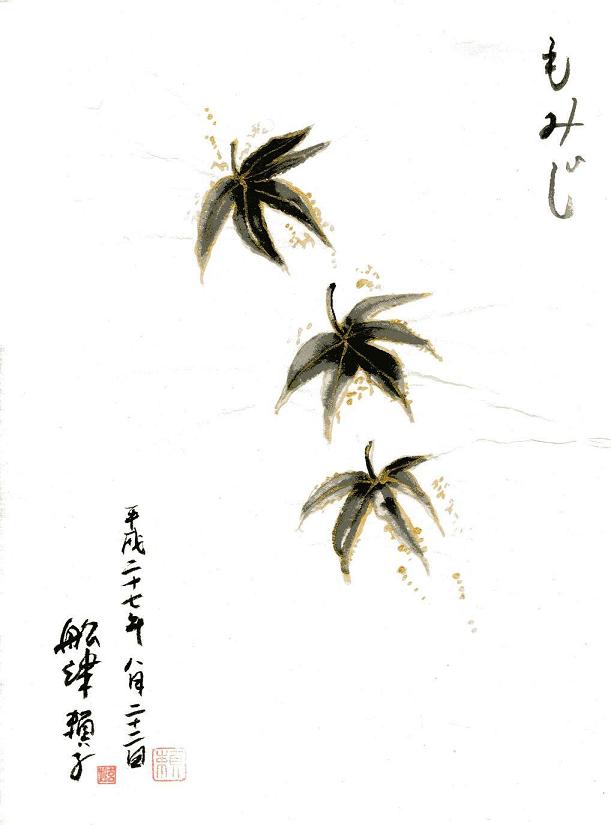 もみじ
平成二十七年八月二十二日
船津頼子